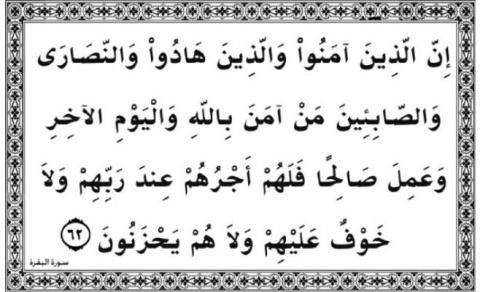 إِنَّ الَّذِينَ آمَنُواْ وَالَّذِينَ هَادُواْ وَالنَّصَارَى
وَالصَّابِئِينَ مَنْ آمَنَ بِاللَّهِ وَالْيَوْمِ الآخِرِ
وَعَمِلَ صَالِحًا فَلَهُمْ أَجْرُهُمْ عِندَ رَبِّهِمْ وَلاَ
خَوْفٌ عَلَيْهِمْ وَلاَ هُمْ يَحْزَنُونَ ٦٢
سورة البقرة